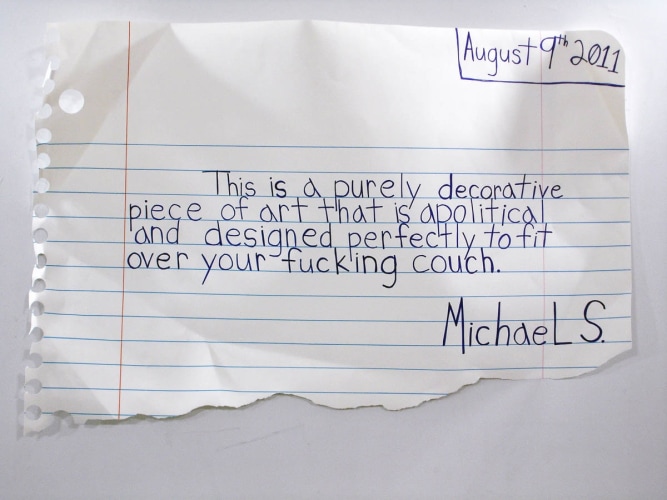 August 9th 2011
This is a purely decorative
piece of art that is apolitical
and designed perfectly to fit
over your fucking couch.
MichaeL S.